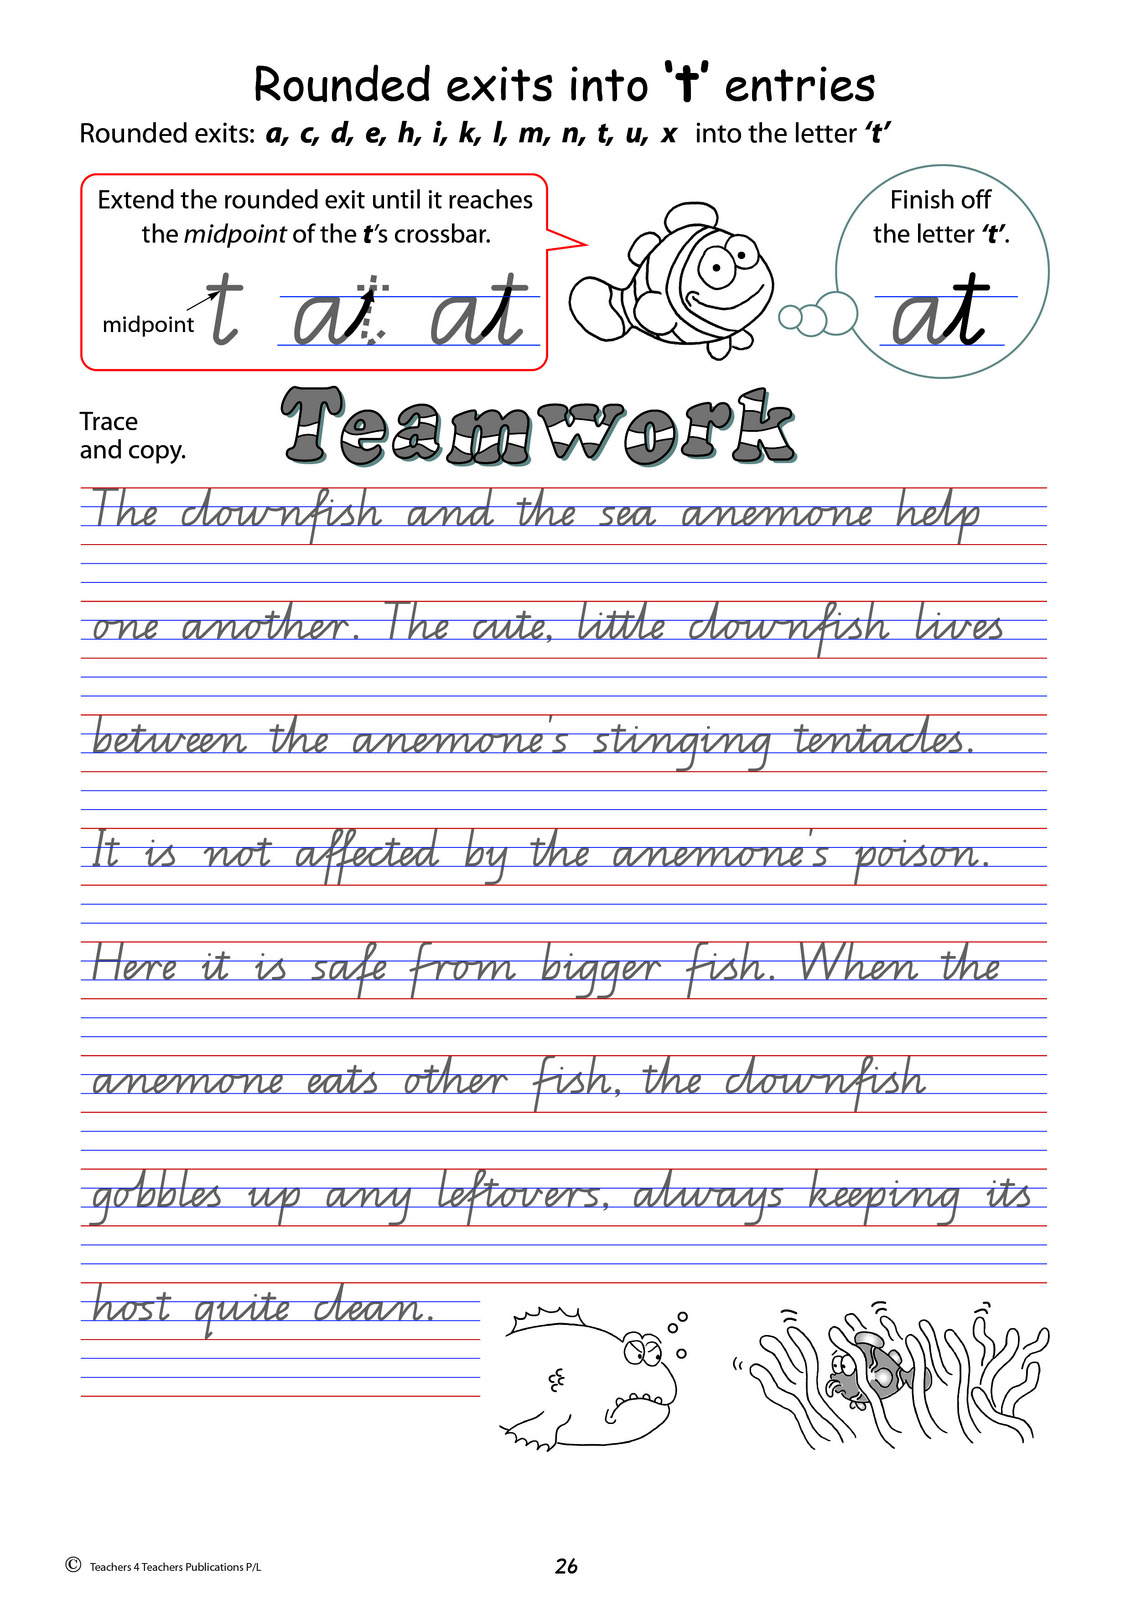 Rounded exits into ‘t’ entries
Rounded exits: a, c, d, e, h, i, k, l, m, n, t, u, x into the letter ‘t’
Extend the rounded exit until it reaches
the midpoint of the t’s crossbar.
midpoint t at at
Finish off
the letter ‘t’.
at
Trace
and copy.
Teamwork
The clownfish and the sea anemone help
one another. The cute, little clownfish lives
between the anemone's stinging tentacles.
It is not affected by the anemone's poison.
Here it is safe from bigger fish. When the
anemone eats other fish, the clownfish
gobbles up any leftovers, always keeping its
host quite clean.
© Teachers 4 Teachers Publications P/L
26